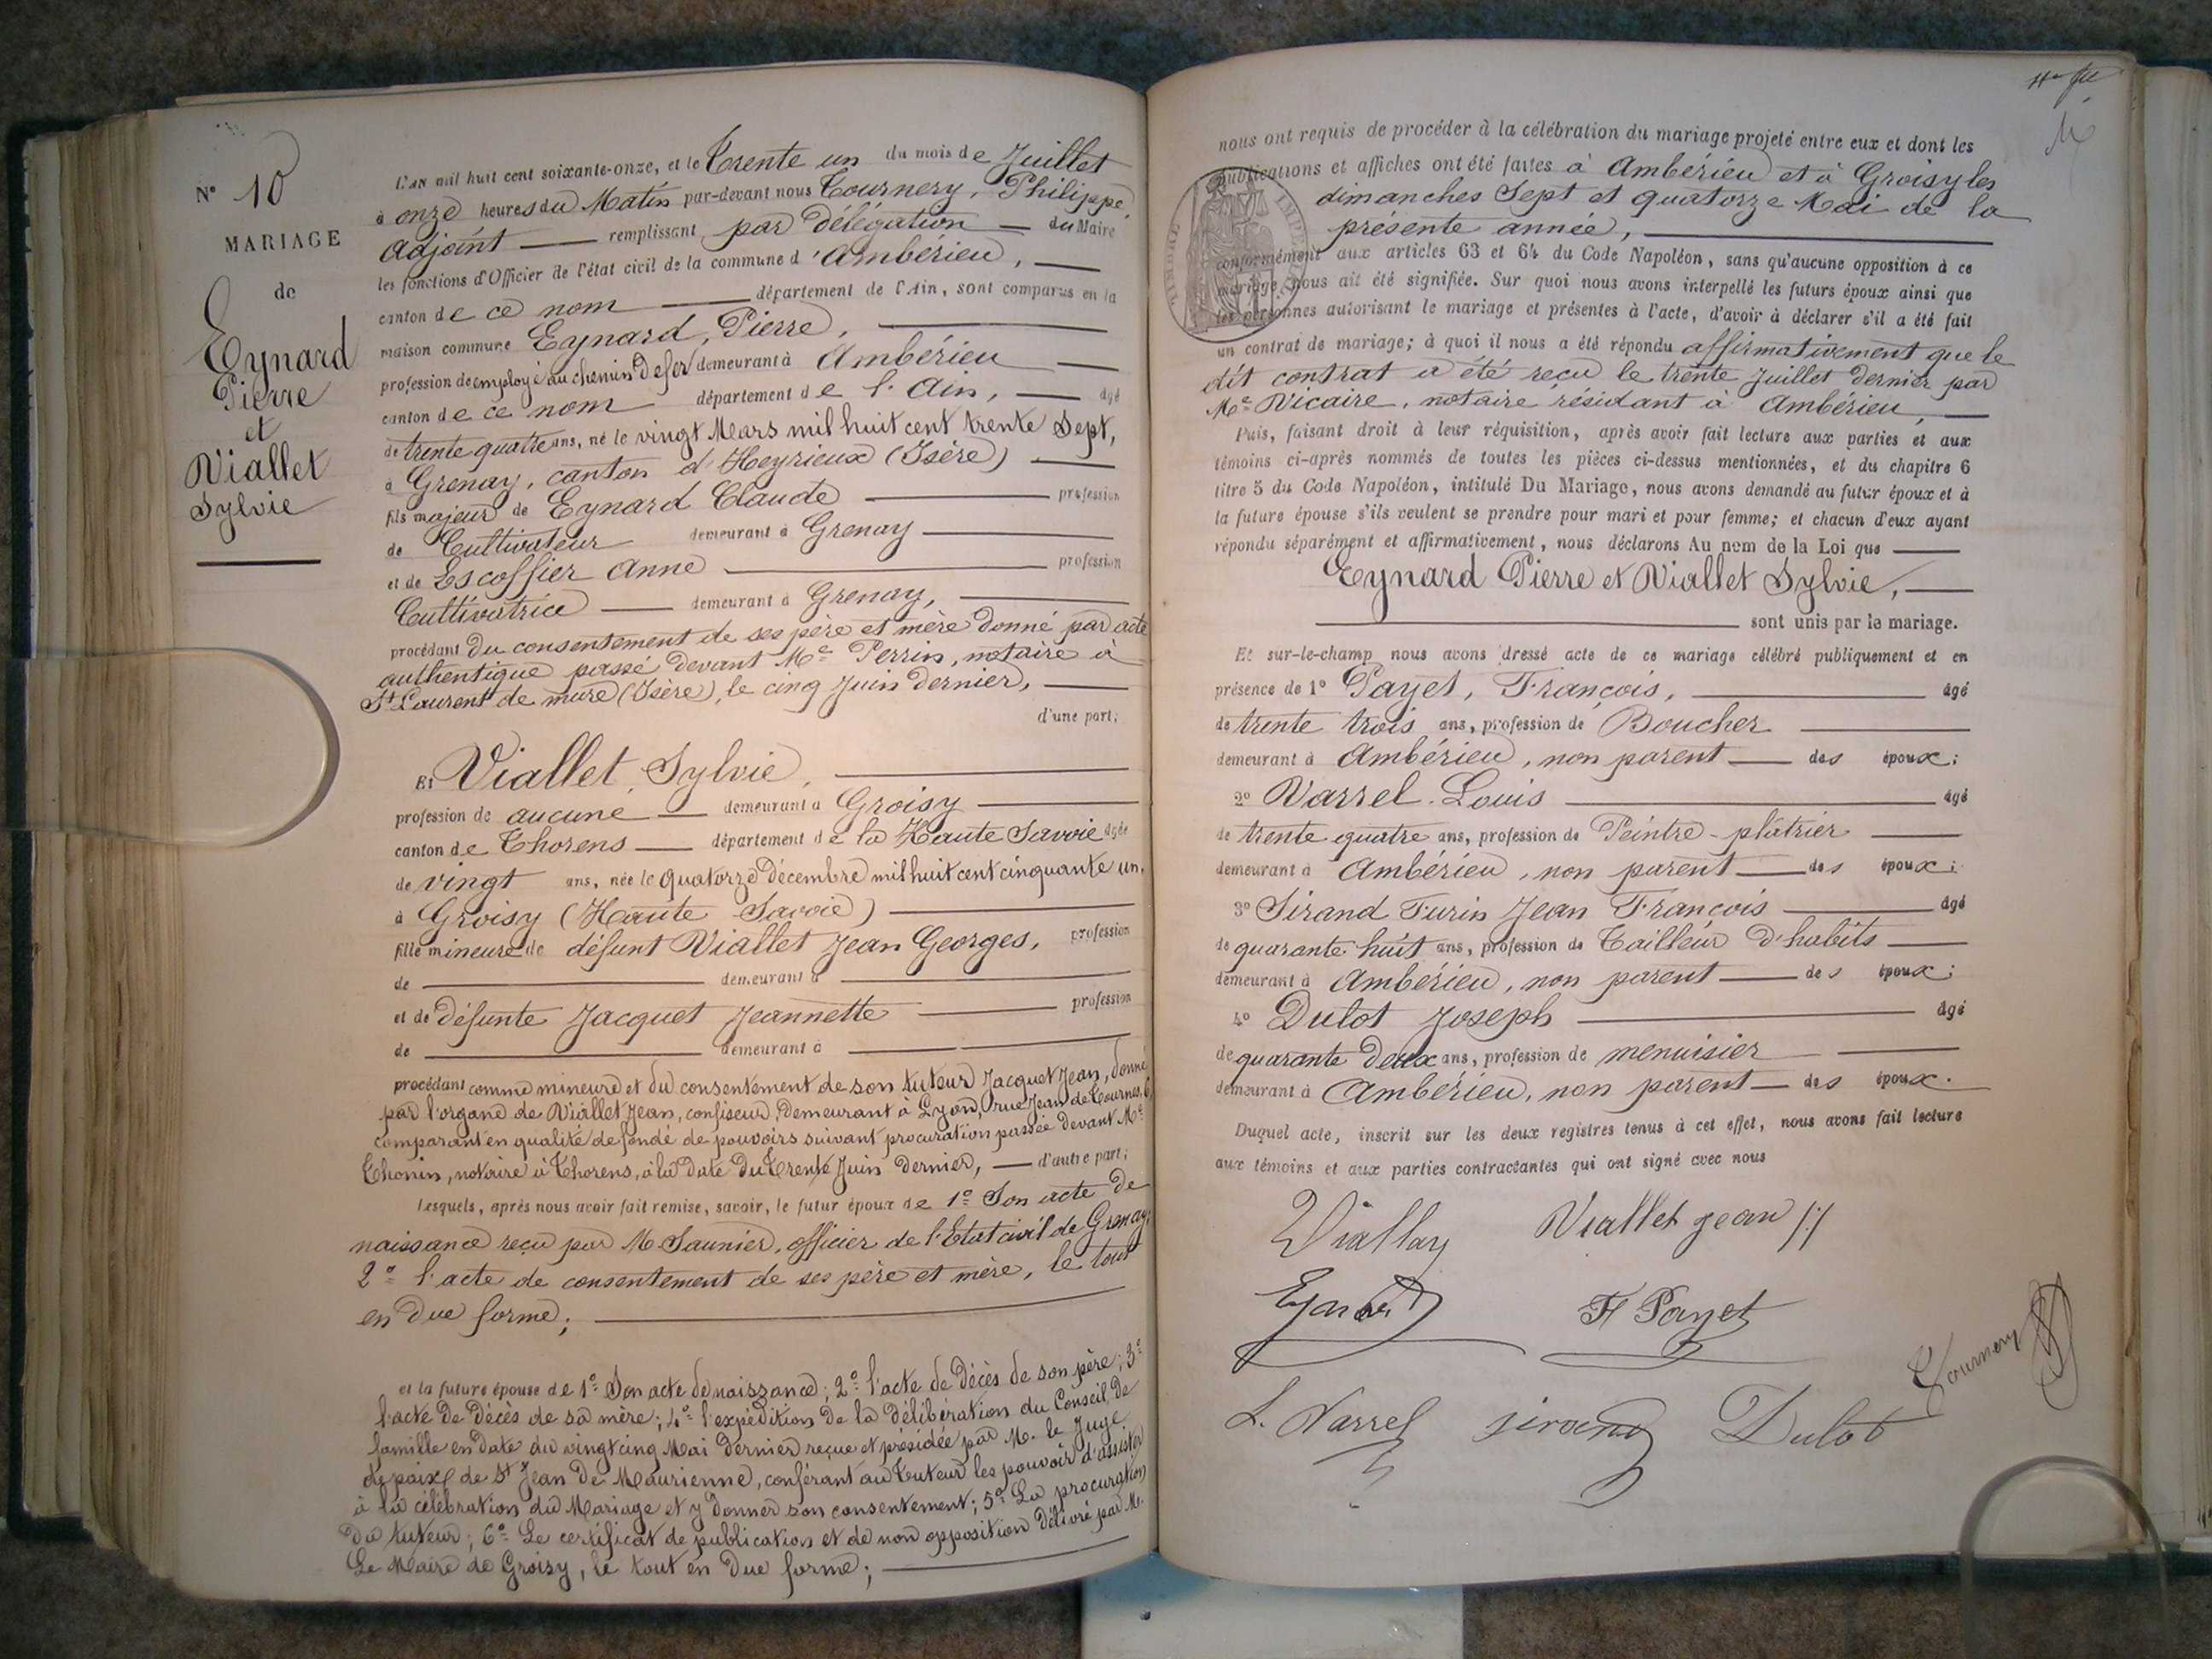 N° 10
MARIAGE
de
Eynard
Pierre
et
Viallet
Sylvie
L'an mil huit cent soixante-onze, et le Trente un du mois de Juillet
à onze heures du Matin par-devant nous Tournery, Philippe,
adjoint remplissant par délégation du Maire
les fonctions d'Officier de l'état civil de la commune d'Ambérieu,
canton de ce nom département de l'Ain, sont comparus en la
maison commune Eynard, Pierre,
profession de employé au chemin de fer demeurant à Ambérieu
canton de ce nom département de l'Ain, âgé
de trente quatre ans, né le vingt Mars mil huit cent trente Sept,
à Grenay, canton d'Heyrieux (Isère)
fils majeur de Eynard Claude profession
de Cultivateur demeurant à Grenay
et de Escoffier Anne profession
Cultivatrice demeurant à Grenay,
procédant du consentement de ses père et mère donné par acte
authentique passé devant Me Perrin, notaire à
St Laurent de mure (Isère), le cinq Juin dernier,
d'une part;
Et Viallet, Sylvie,
profession de aucune demeurant à Groisy
canton de Thorens département de la Haute Savoie âgée
de vingt ans, née le quatorze Décembre mil huit cent cinquante un,
à Groisy (Haute Savoie)
fille mineure de défunt Viallet Jean Georges, profession
de demeurant à
et de défunte Jacquet Jeannette profession
de demeurant à
procédant comme mineure et du consentement de son tuteur Jacquet Jean, donné
par l'organe de Viallet Jean, confiseur, demeurant à Lyon, rue Jean de Tournes, 6,
comparant en qualité de fondé de pouvoirs suivant procuration passée devant Me
Thonin, notaire à Thorens, à la date du trente Juin dernier, d'autre part;
Lesquels, après nous avoir fait remise, savoir, le futur époux de 1° Son acte de
naissance reçu par M. Saunier, officier de l'Etat civil de Grenay;
2° l'acte de consentement de ses père et mère, le tout
en due forme;
et la future épouse de 1° Son acte de naissance; 2° l'acte de décès de son père; 3°
l'acte de décès de sa mère; 4° l'expédition de la délibération du Conseil de
famille en date du vingt cinq Mai dernier reçue et présidée par M. le Juge
de paix de St Jean de Maurienne, conférant au tuteur les pouvoir d'assister
à la célébration du Mariage et y donner son consentement; 5° La procuration
du tuteur; 6° Le certificat de publication et de non opposition délivré par M.
Le Maire de Groisy, le tout en due forme;
nous ont requis de procéder à la célébration du mariage projeté entre eux et dont les
publications et affiches ont été faites à Ambérieu et à Groisy les
dimanches Sept et quatorze Mai de la
présente année,
conformément aux articles 63 et 64 du Code Napoléon, sans qu'aucune opposition à ce
mariage nous ait été signifiée. Sur quoi nous avons interpellé les futurs époux ainsi que
les personnes autorisant le mariage et présentes à l'acte, d'avoir à déclarer s'il a été fait
un contrat de mariage; à quoi il nous a été répondu affirmativement que le
dit contrat a été reçu le trente Juillet dernier par
Me Vicaire, notaire résidant à Ambérieu,
Puis, faisant droit à leur réquisition, après avoir fait lecture aux parties et aux
témoins ci-après nommés de toutes les pièces ci-dessus mentionnées, et du chapitre 6
titre 5 du Code Napoléon, intitulé Du Mariage, nous avons demandé au futur époux et à
la future épouse s'ils veulent se prendre pour mari et pour femme; et chacun d'eux ayant
répondu séparément et affirmativement, nous déclarons Au nom de la Loi que
Eynard Pierre et Viallet Sylvie,
sont unis par le mariage.
Et sur-le-champ nous avons dressé acte de ce mariage célébré publiquement et en
présence de 1° Payet, François, âgé
de trente trois ans, profession de Boucher
demeurant à Ambérieu, non parent des époux;
2° Varrel Louis âgé
de trente quatre ans, profession de Peintre-plâtrier
demeurant à Ambérieu, non parent des époux;
3° Sirand Turin Jean François âgé
de quarante huit ans, profession de Tailleur d'habits
demeurant à Ambérieu, non parent des époux;
4° Dulot Joseph âgé
de quarante deux ans, profession de menuisier
demeurant à Ambérieu, non parent des époux.
Duquel acte, inscrit sur les deux registres tenus à cet effet, nous avons fait lecture
aux témoins et aux parties contractantes qui ont signé avec nous
Viallay Viallet jean
Eynard F Payet
Tournery
L. Varrel Sirand Dulot